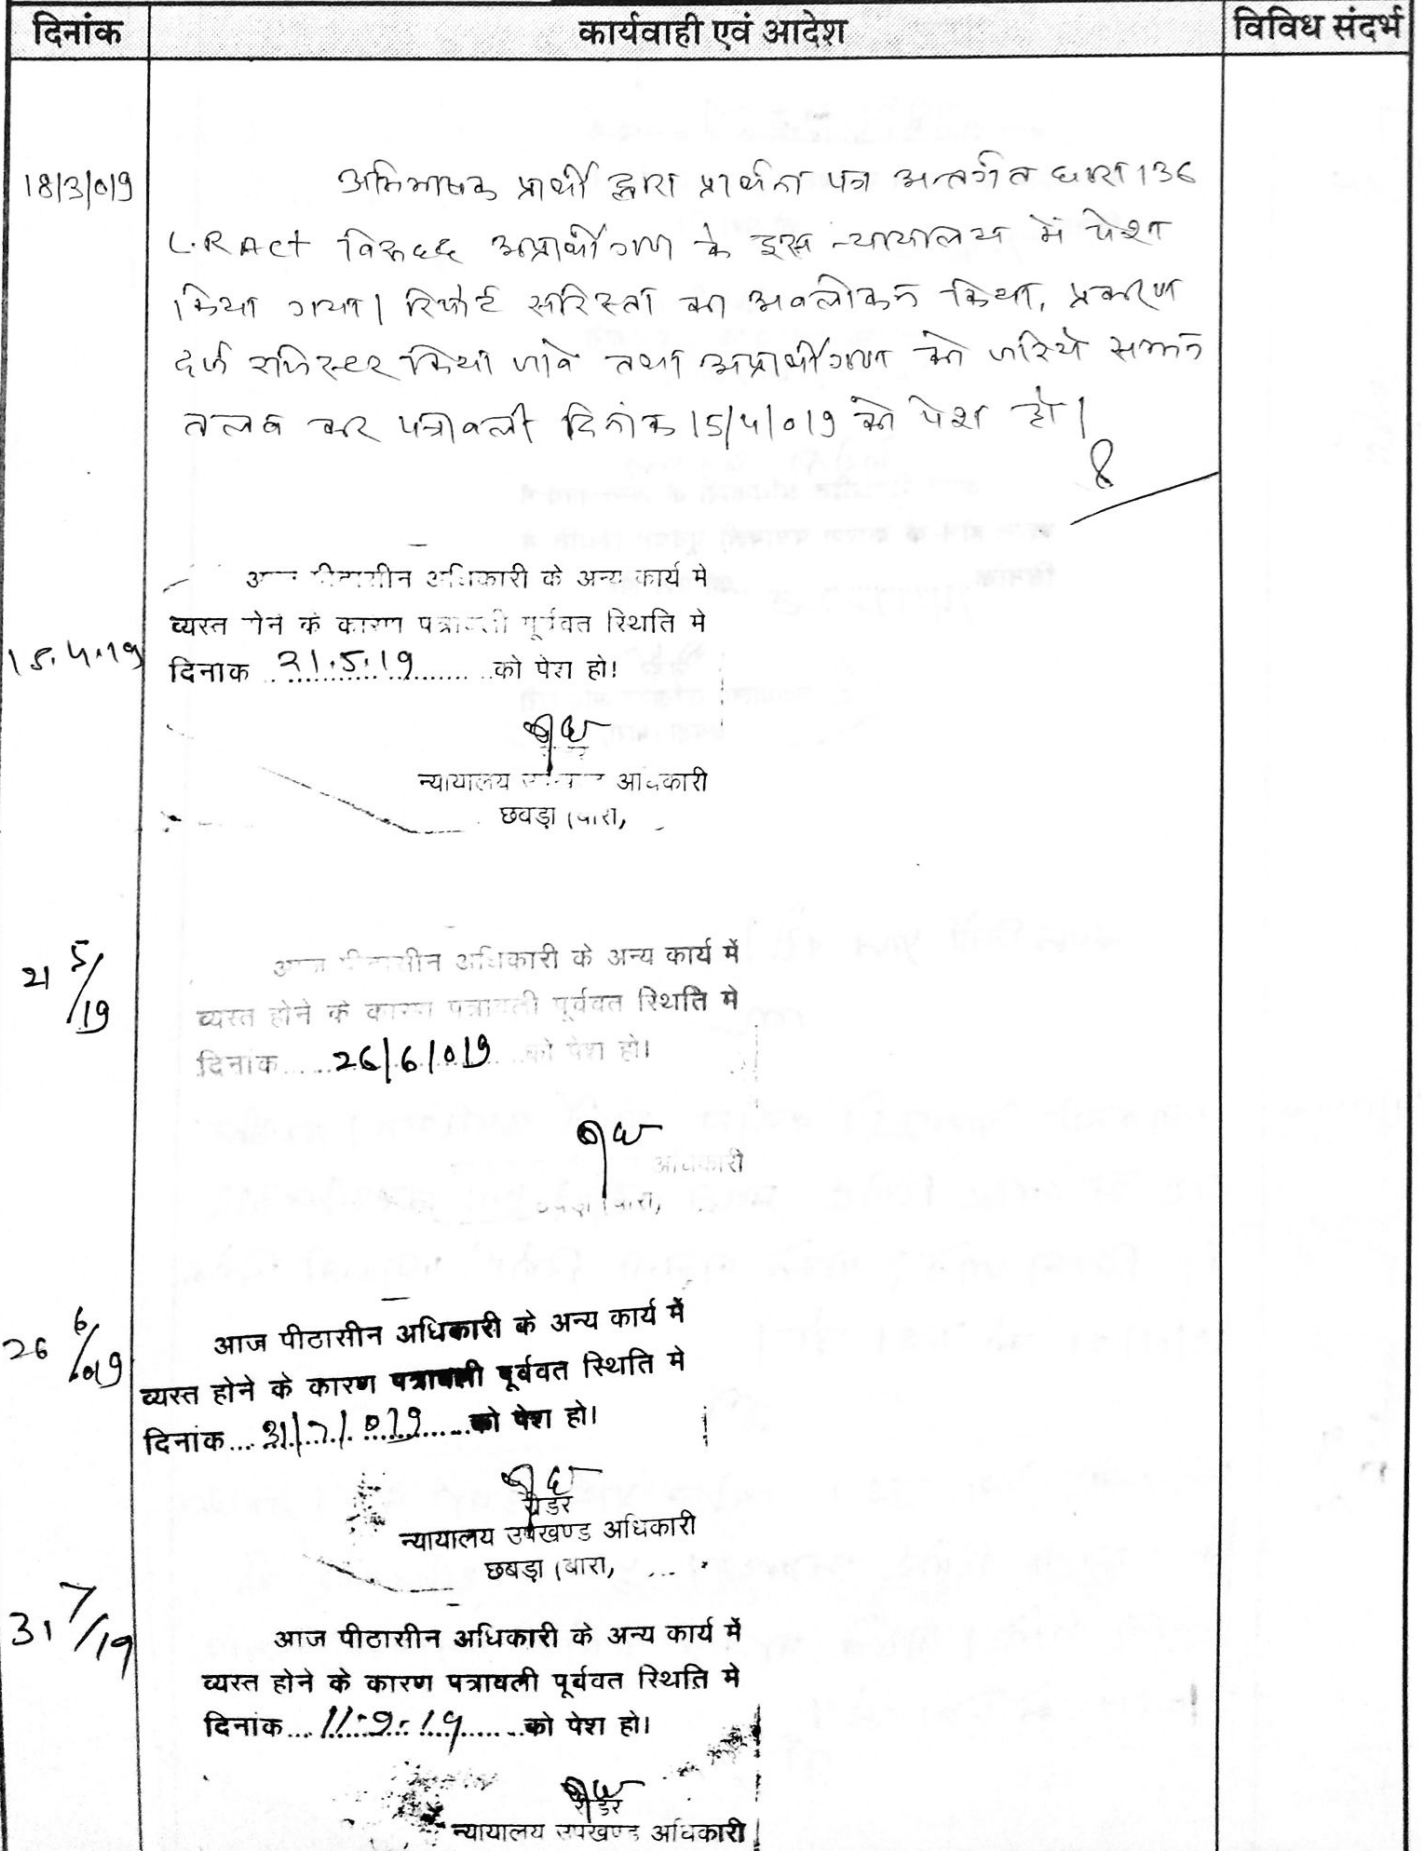 दिनांक कार्यवाही एवं आदेश विविध संदर्भ
18/3/019 अभिभाषक प्रार्थी द्वारा प्रार्थना पत्र अन्तर्गत धारा 136
L.R Act विरूद्ध अप्रार्थीगण के इस न्यायालय में पेश
किया गया। रिपोर्ट सरिस्ता का अवलोकन किया, प्रकरण
दर्ज रजिस्टर किया जावे तथा अप्रार्थीगण को जरिये सम्मन
तलब कर पत्रावली दिनांक 15/4/019 को पेश हो।
आज पीठासीन अधिकारी के अन्य कार्य मे
व्यस्त होने के कारण पत्रावली पूर्ववत स्थिति मे
15.4.19 दिनाक 21.5.19 को पेश हो!
न्यायालय अधिकारी
छबड़ा (बारा)
21 5/19 आज पीठासीन अधिकारी के अन्य कार्य में
व्यस्त होने के कारण पत्रावली पूर्ववत स्थिति मे
दिनांक..... 26/6/019 को पेश हो।
अधिकारी
छबड़ा (बारा)
26 6/019 आज पीठासीन अधिकारी के अन्य कार्य में
व्यस्त होने के कारण पत्रावली पूर्ववत स्थिति मे
दिनांक... 31/7/019 को पेश हो।
रीडर
न्यायालय उपखण्ड अधिकारी
छबड़ा (बारा)
31 7/19 आज पीठासीन अधिकारी के अन्य कार्य में
व्यस्त होने के कारण पत्रावली पूर्ववत स्थिति मे
दिनांक... 11.9.19 को पेश हो।
रीडर
न्यायालय उपखण्ड अधिकारी